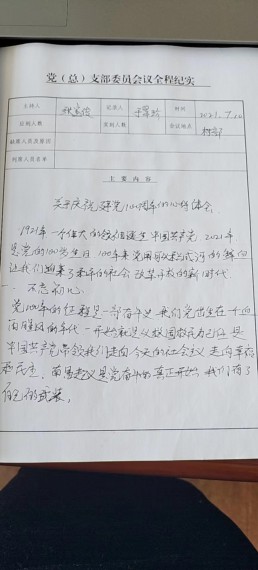 党（总）支部委员会议全程纪实
主持人 记录人 时间 2021.7.
应到人数 实到人数 会议地点 村部
缺席人员及原因
列席人员名单
主要内容
关于庆祝建党100周年的心得体会
1921年一个伟大的领诞生中国共产党 2021年
是党的100岁生日 100年来党用
让我们迎来了的社会 改革开放的新时代
一、不忘初心
党100年的征程是一部奋斗史 我们党出生在一个
雨的年代 一开始就是以救国救民为己任 是
中国共产党带领我们走向今天的社会主义 走向幸福
和民生 南昌起义是党的真正开始 我们有了
自己的武装，